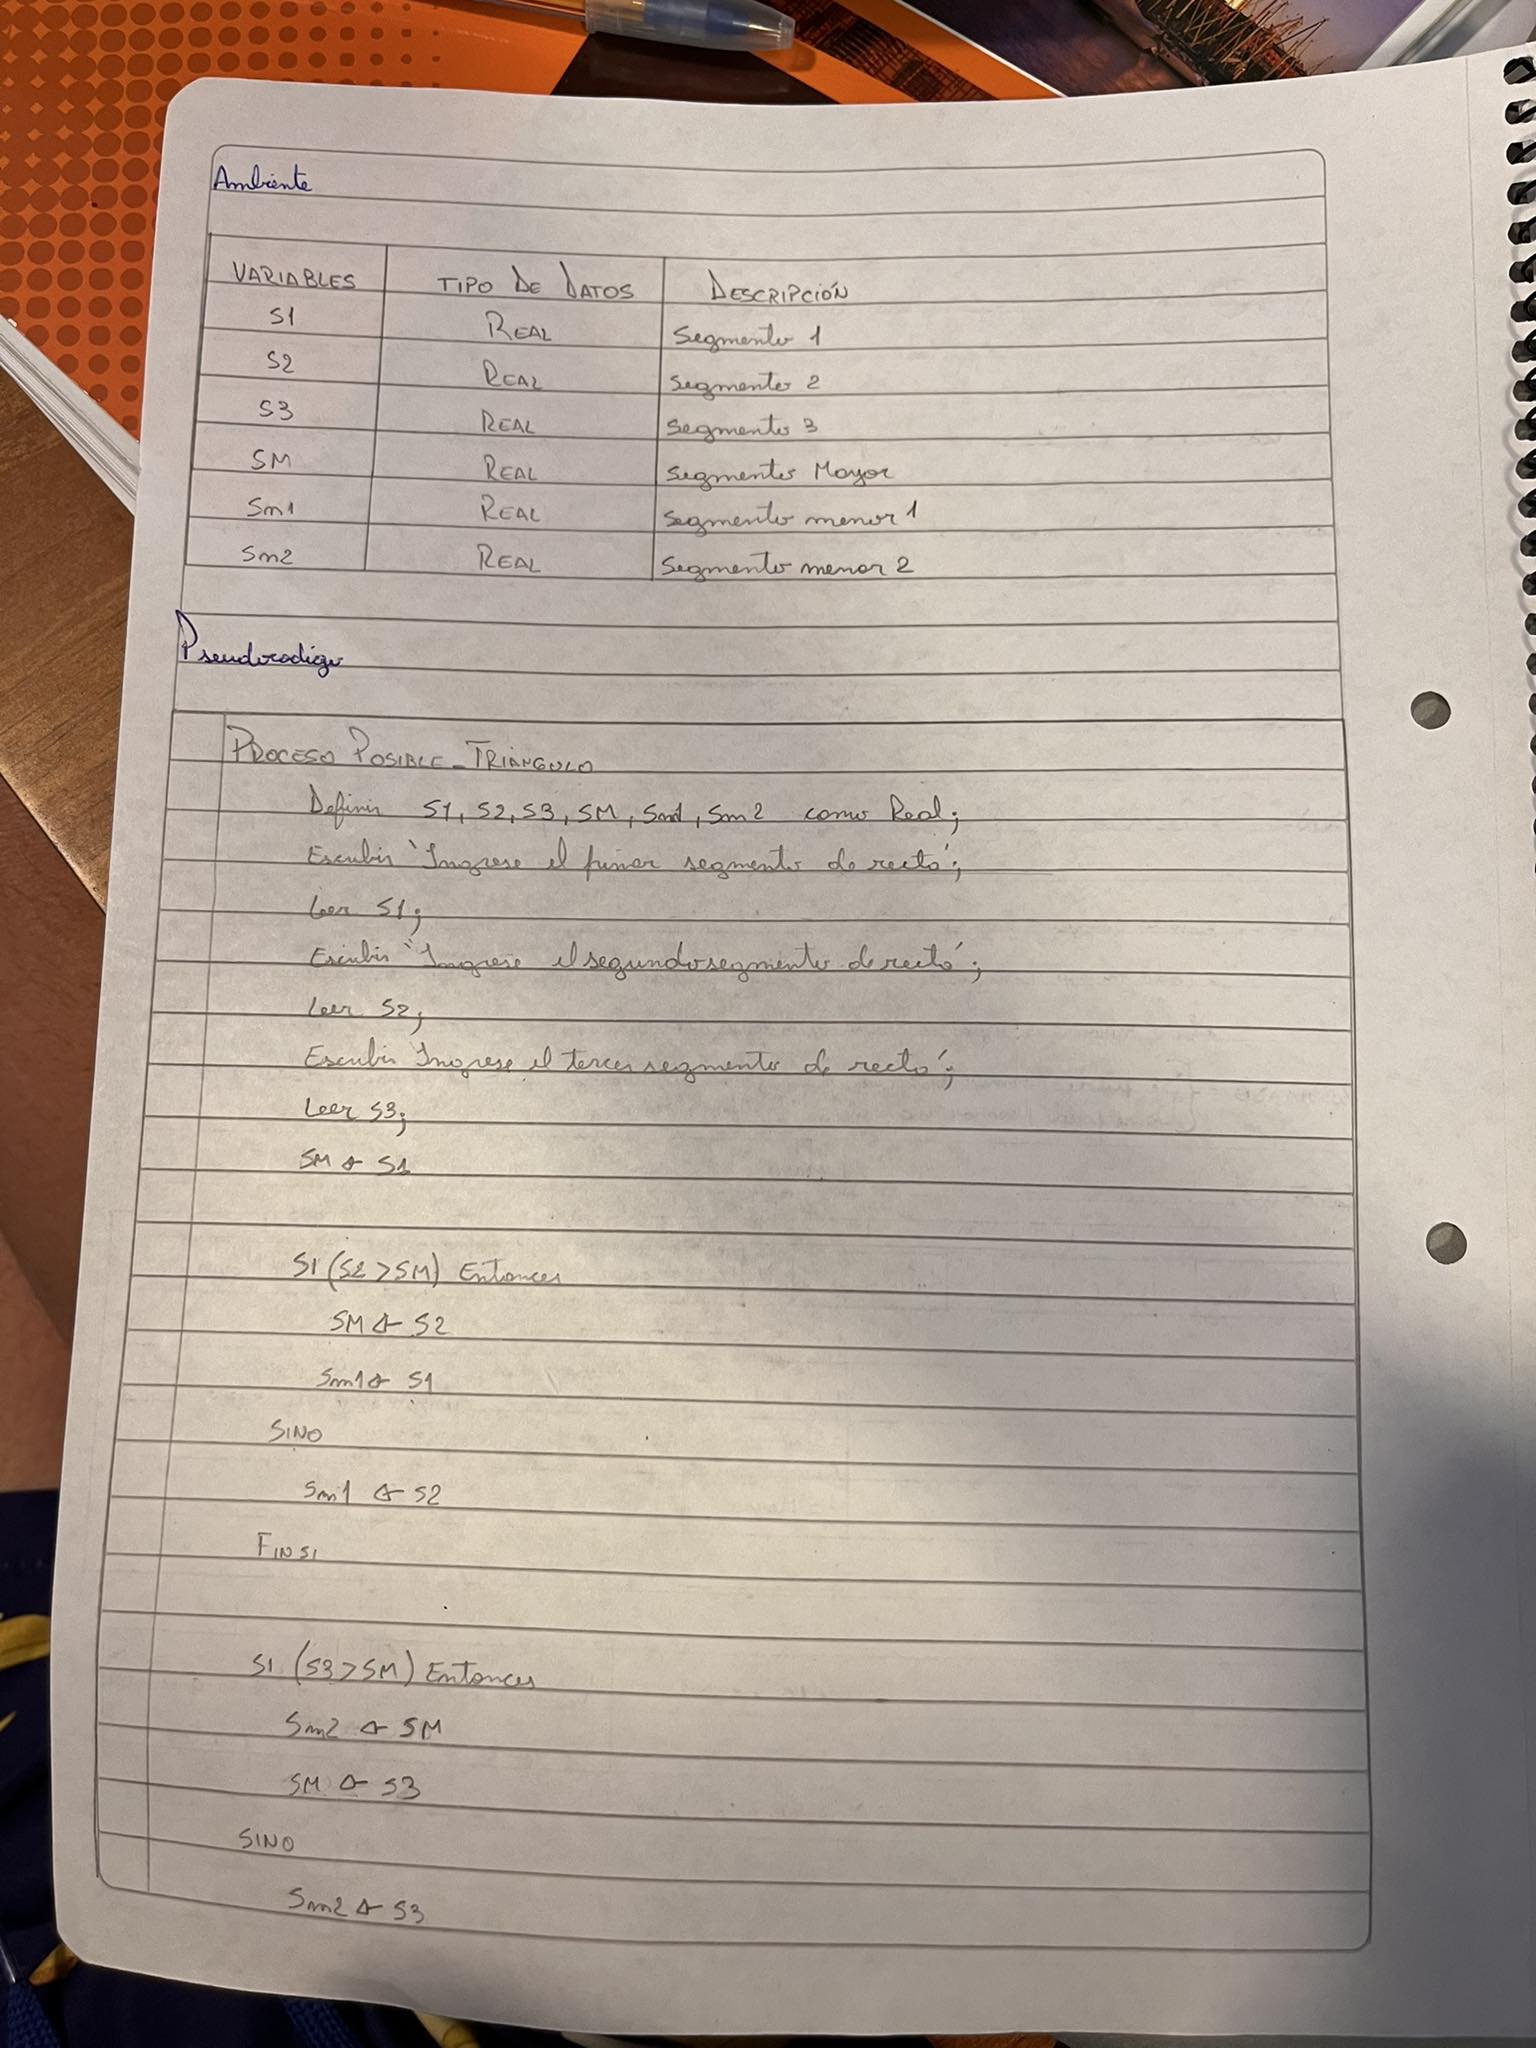 Ambiente
VARIABLES TIPO DE DATOS DESCRIPCIÓN
S1 REAL Segmento 1
S2 REAL Segmento 2
S3 REAL Segmento 3
SM REAL Segmento Mayor
Sm1 REAL Segmento menor 1
Sm2 REAL Segmento menor 2
Pseudocodigo
PROCESO POSIBLE_TRIÁNGULO
Definir S1, S2, S3, SM, Sm1, Sm2 como Real;
Escribir 'Ingrese el primer segmento de recta';
Leer S1;
Escribir 'Ingrese el segundo segmento de recta';
Leer S2;
Escribir 'Ingrese el tercer segmento de recta';
Leer S3;
SM ← S1
SI (S2 > SM) Entonces
SM ← S2
Sm1 ← S1
SINO
Sm1 ← S2
FINSI
SI (S3 > SM) Entonces
Sm2 ← SM
SM ← S3
SINO
Sm2 ← S3